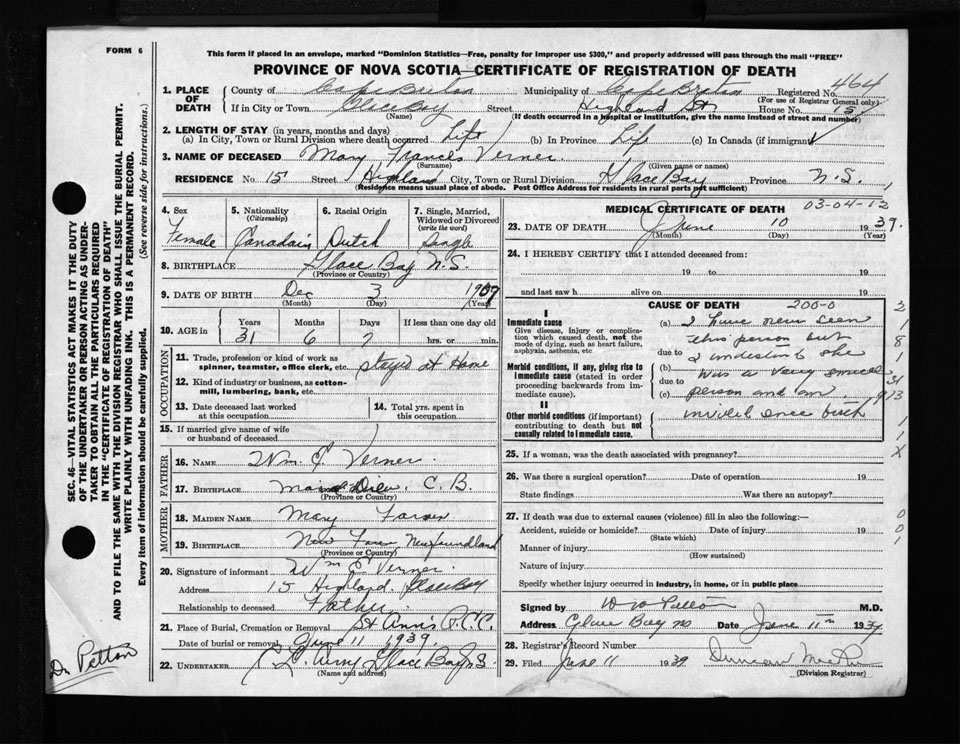 FORM 6
This form if placed in an envelope, marked "Dominion Statistics—Free, penalty for improper use $300," and properly addressed will pass through the mail "FREE"
PROVINCE OF NOVA SCOTIA—CERTIFICATE OF REGISTRATION OF DEATH
464
1. PLACE OF DEATH County of Cape Breton Municipality of Cape Breton Registered No.
(For use of Registrar General only)
If in City or Town Glace Bay Street Highland St House No. 15
(Name) (If death occurred in a hospital or institution, give the name instead of street and number)
2. LENGTH OF STAY (in years, months and days)
(a) In City, Town or Rural Division where death occurred Life (b) In Province Life (c) In Canada (if immigrant)
3. NAME OF DECEASED Mary Frances Verner
(Surname) (Given name or names)
RESIDENCE No. 15 Street Highland City, Town or Rural Division Glace Bay Province N.S.
(Residence means usual place of abode. Post Office Address for residents in rural parts not sufficient)
4. Sex Female
5. Nationality (Citizenship) Canadain
6. Racial Origin Dutch
7. Single, Married, Widowed or Divorced (write the word) Single
8. BIRTHPLACE Glace Bay N.S.
(Province or Country)
9. DATE OF BIRTH Dec 3
(Month) (Day) (Year)
10. AGE in Years Months Days If less than one day old
31 6 7 hrs. or min.
OCCUPATION
11. Trade, profession or kind of work as spinner, teamster, office clerk, etc. stayed at Home
12. Kind of industry or business, as cotton-mill, lumbering, bank, etc.
13. Date deceased last worked at this occupation
14. Total yrs. spent in this occupation
15. If married give name of wife or husband of deceased
FATHER
16. NAME Wm. E. Verner
17. BIRTHPLACE C. B.
(Province or Country)
MOTHER
18. MAIDEN NAME Mary
19. BIRTHPLACE New Newfoundland
(Province or Country)
20. Signature of informant Wm E Verner
Address 15 Highland, Glace Bay
Relationship to deceased Father
21. Place of Burial, Cremation or Removal St Ann's
Date of burial or removal June 11 1939
22. UNDERTAKER Glace Bay N.S.
(Name and address)
MEDICAL CERTIFICATE OF DEATH 03-04-12
23. DATE OF DEATH June 10 1939.
(Month) (Day) (Year)
24. I HEREBY CERTIFY that I attended deceased from:
19 to 19
and last saw h alive on 19
CAUSE OF DEATH
200-0
I
Immediate cause
Give disease, injury or complication which caused death, not the mode of dying, such as heart failure, asphyxia, asthenia, etc
Morbid conditions, if any, giving rise to immediate cause (stated in order proceeding backwards from immediate cause).
II
Other morbid conditions (if important) contributing to death but not causally related to immediate cause.
(a) I have never seen
this person but
due to I understand she
(b) was a very
due to
(c) person and an
invalid since birth
2
1
8
1
31
913
1
1
X
25. If a woman, was the death associated with pregnancy?
26. Was there a surgical operation? Date of operation 19
State findings Was there an autopsy?
27. If death was due to external causes (violence) fill in also the following:—
Accident, suicide or homicide? Date of injury 19
(State which)
Manner of injury
(How sustained)
Nature of injury
Specify whether injury occurred in industry, in home, or in public place
0
0
1
Signed by M.D.
Address Glace Bay Date June 11th 1939
28. Registrar's Record Number
29. Filed June 11 1939 Duncan
(Division Registrar)
SEC. 46—VITAL STATISTICS ACT MAKES IT THE DUTY OF THE UNDERTAKER OR PERSON ACTING AS UNDERTAKER TO OBTAIN ALL THE PARTICULARS REQUIRED IN THE "CERTIFICATE OF REGISTRATION OF DEATH" AND TO FILE THE SAME WITH THE DIVISION REGISTRAR WHO SHALL ISSUE THE BURIAL PERMIT.
WRITE PLAINLY WITH UNFADING INK. THIS IS A PERMANENT RECORD.
Every item of information should be carefully supplied. (See reverse side for instructions.)
Dr Petton